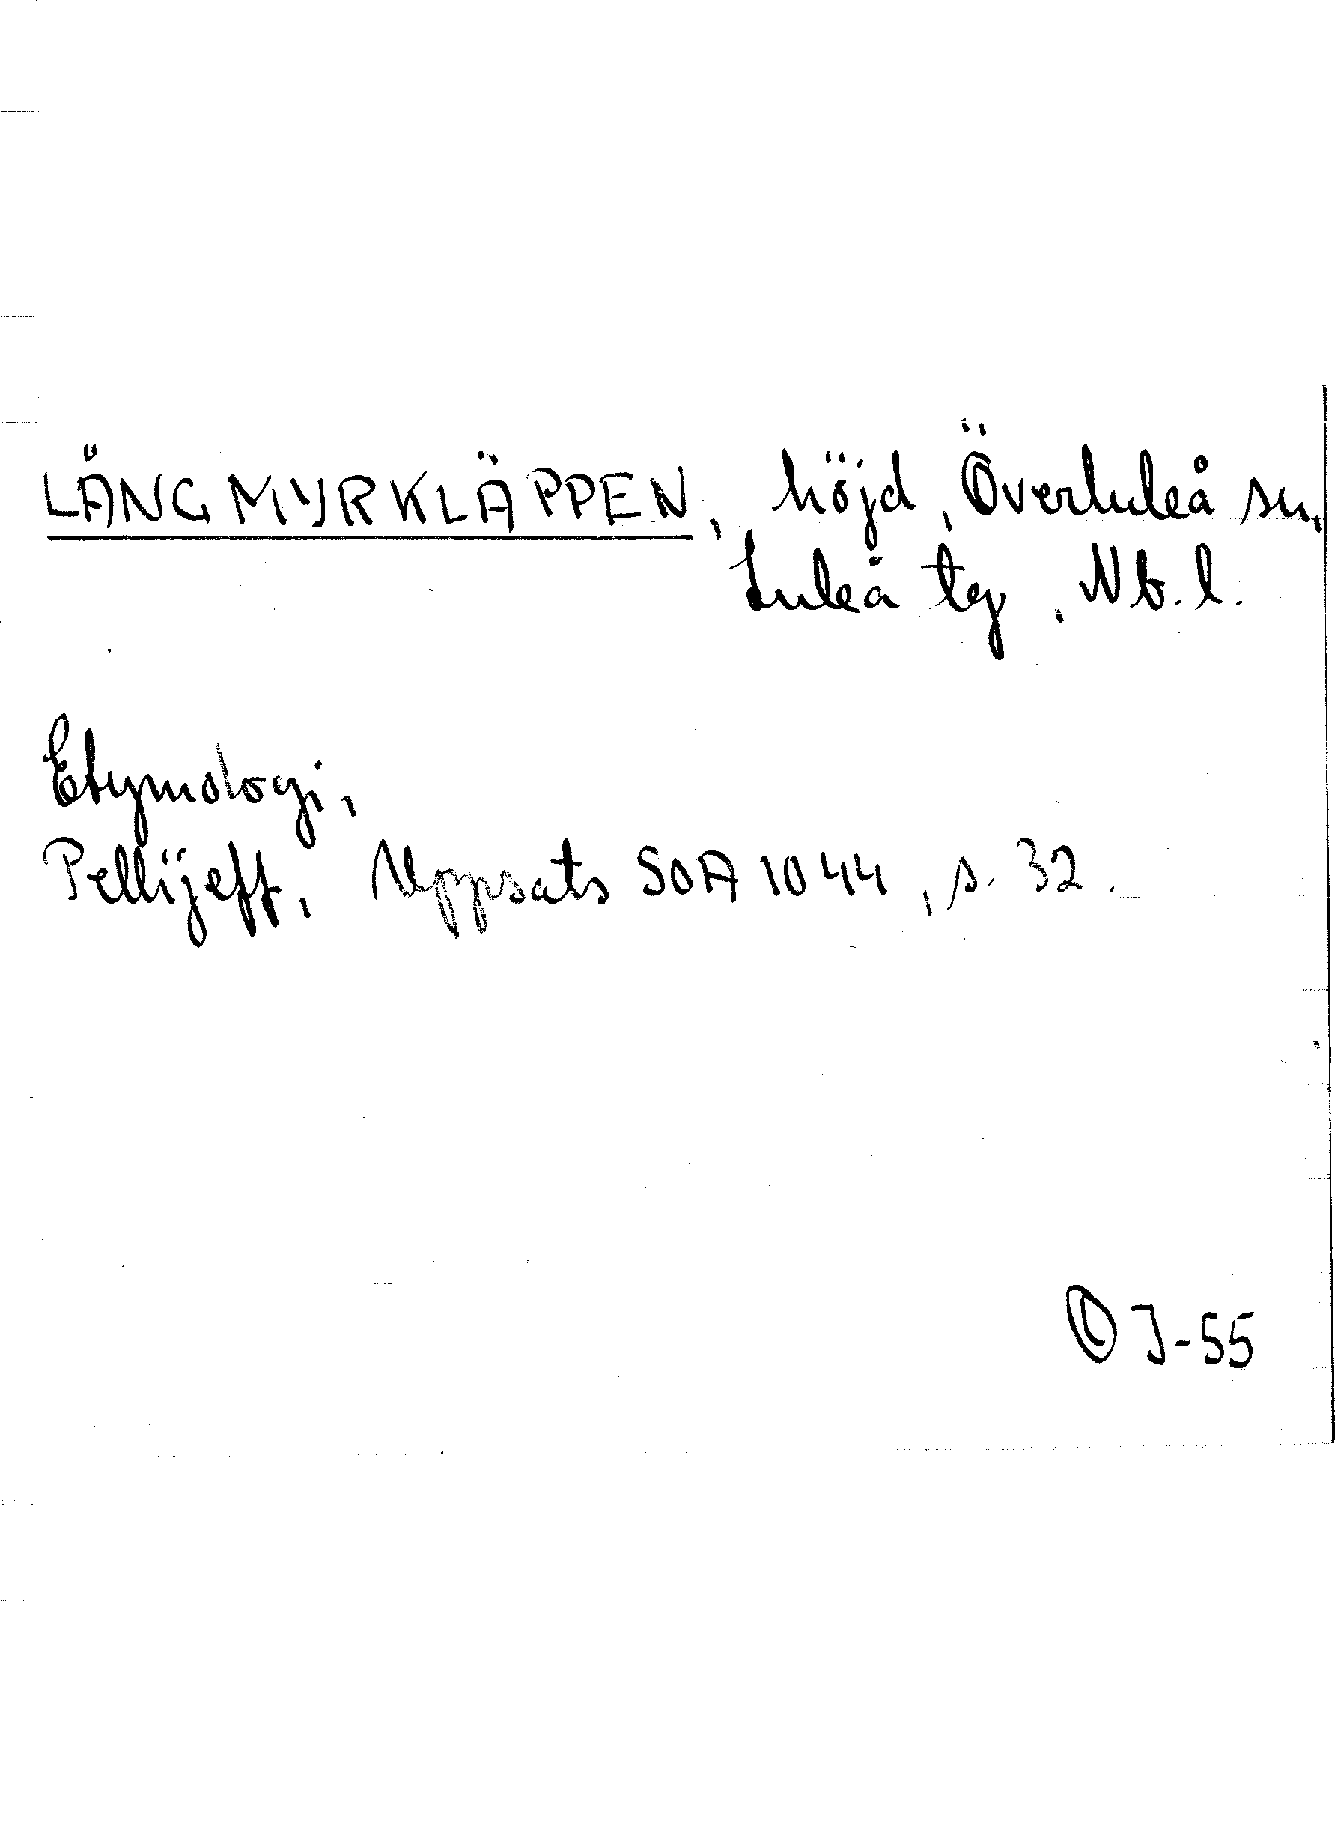 LÅNGMYRKLÄPPEN, höjd, Överluleå sn,
Luleå tg, Nb. l.
Etymologi,
Pellijeff, Uppsats SOA 1044, s. 32.
© J-55